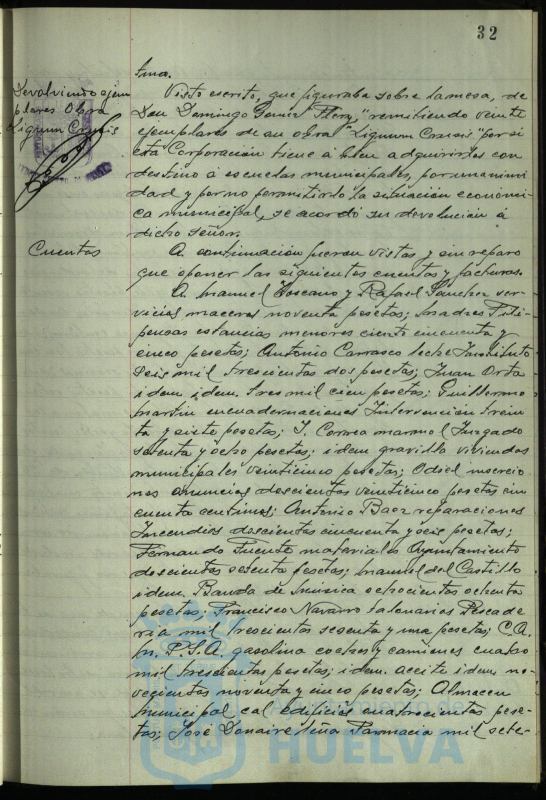 32
tma.
Devolviendo ejem
plares Obra
Lignum Crucis
Visto escrito, que figuraba sobre la mesa, de
Don Domingo Gomez Flery, remitiendo veinte
ejemplares de su obra "Lignum Crucis" por si
esta Corporación tiene á bien adquirirlos con
destino á escuelas municipales, por unanimi
dad y por no permitirlo la situación económi
ca municipal, se acordó su devolución á
dicho señor.
Cuentas
A continuación fueron vistas y sin reparo
que oponer las siguientes cuentas y facturas.
A Manuel Toscano y Rafael Sanchez ser
vicios maceros noventa pesetas; Madres Fili
pensas estancias menores ciento cincuenta y
cinco pesetas; Antonio Carrasco leche Instituto
seis mil trescientas dos pesetas; Juan Orta
idem idem tres mil cien pesetas; Guillermo
Martin encuadernaciones Intervención trein
ta y siete pesetas; J. Correa marmol Juzgado
setenta y ocho pesetas; idem gravilla viviendas
municipales veinticinco pesetas; Odiel insercio
nes anuncios doscientas veinticinco pesetas cin
cuenta centimos; Antonio Baez reparaciones
Incendios doscientas cincuenta y seis pesetas;
Fernando Fuente materiales Ayuntamiento
doscientas setenta pesetas; Manuel del Castillo
idem Banda de musica ochocientas ochenta
pesetas; Francisco Navarro talonarios Pescade
ria mil trescientas sesenta y una pesetas; C.A.
M.P.S.A. gasolina coches y camiones cuatro
mil trescientas pesetas; idem aceite idem no
vecientas noventa y cinco pesetas; Almacen
Municipal cal edificios cuatrocientas pese-
tas; José Donaire leña Farmacia mil sete-
Ayuntamiento de
HUELVA